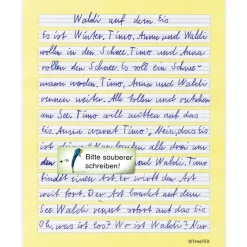 Waldi auf dem Eis
Es ist Winter, Timo, Anna und Waldi
wollen in den Schnee. Timo und Anna
rollen den Schnee. Es soll ein Schnee-
mann werden. Timo, Anna und Waldi
rennen weiter. Alle tollen und
im See. Timo will mitten auf das
Eis. Anna warnt Timo: „Nein, das Eis
ist dünn!" Nun alle drei
den und Waldi. Timo
findet einen Ast. Er wirft den Ast
weit fort. Der Ast landet auf dem
See. Waldi rennt sofort auf das Eis
Oh, was ist los? Wo ist Waldi? O
Bitte sauberer
schreiben!
©TimeTEX